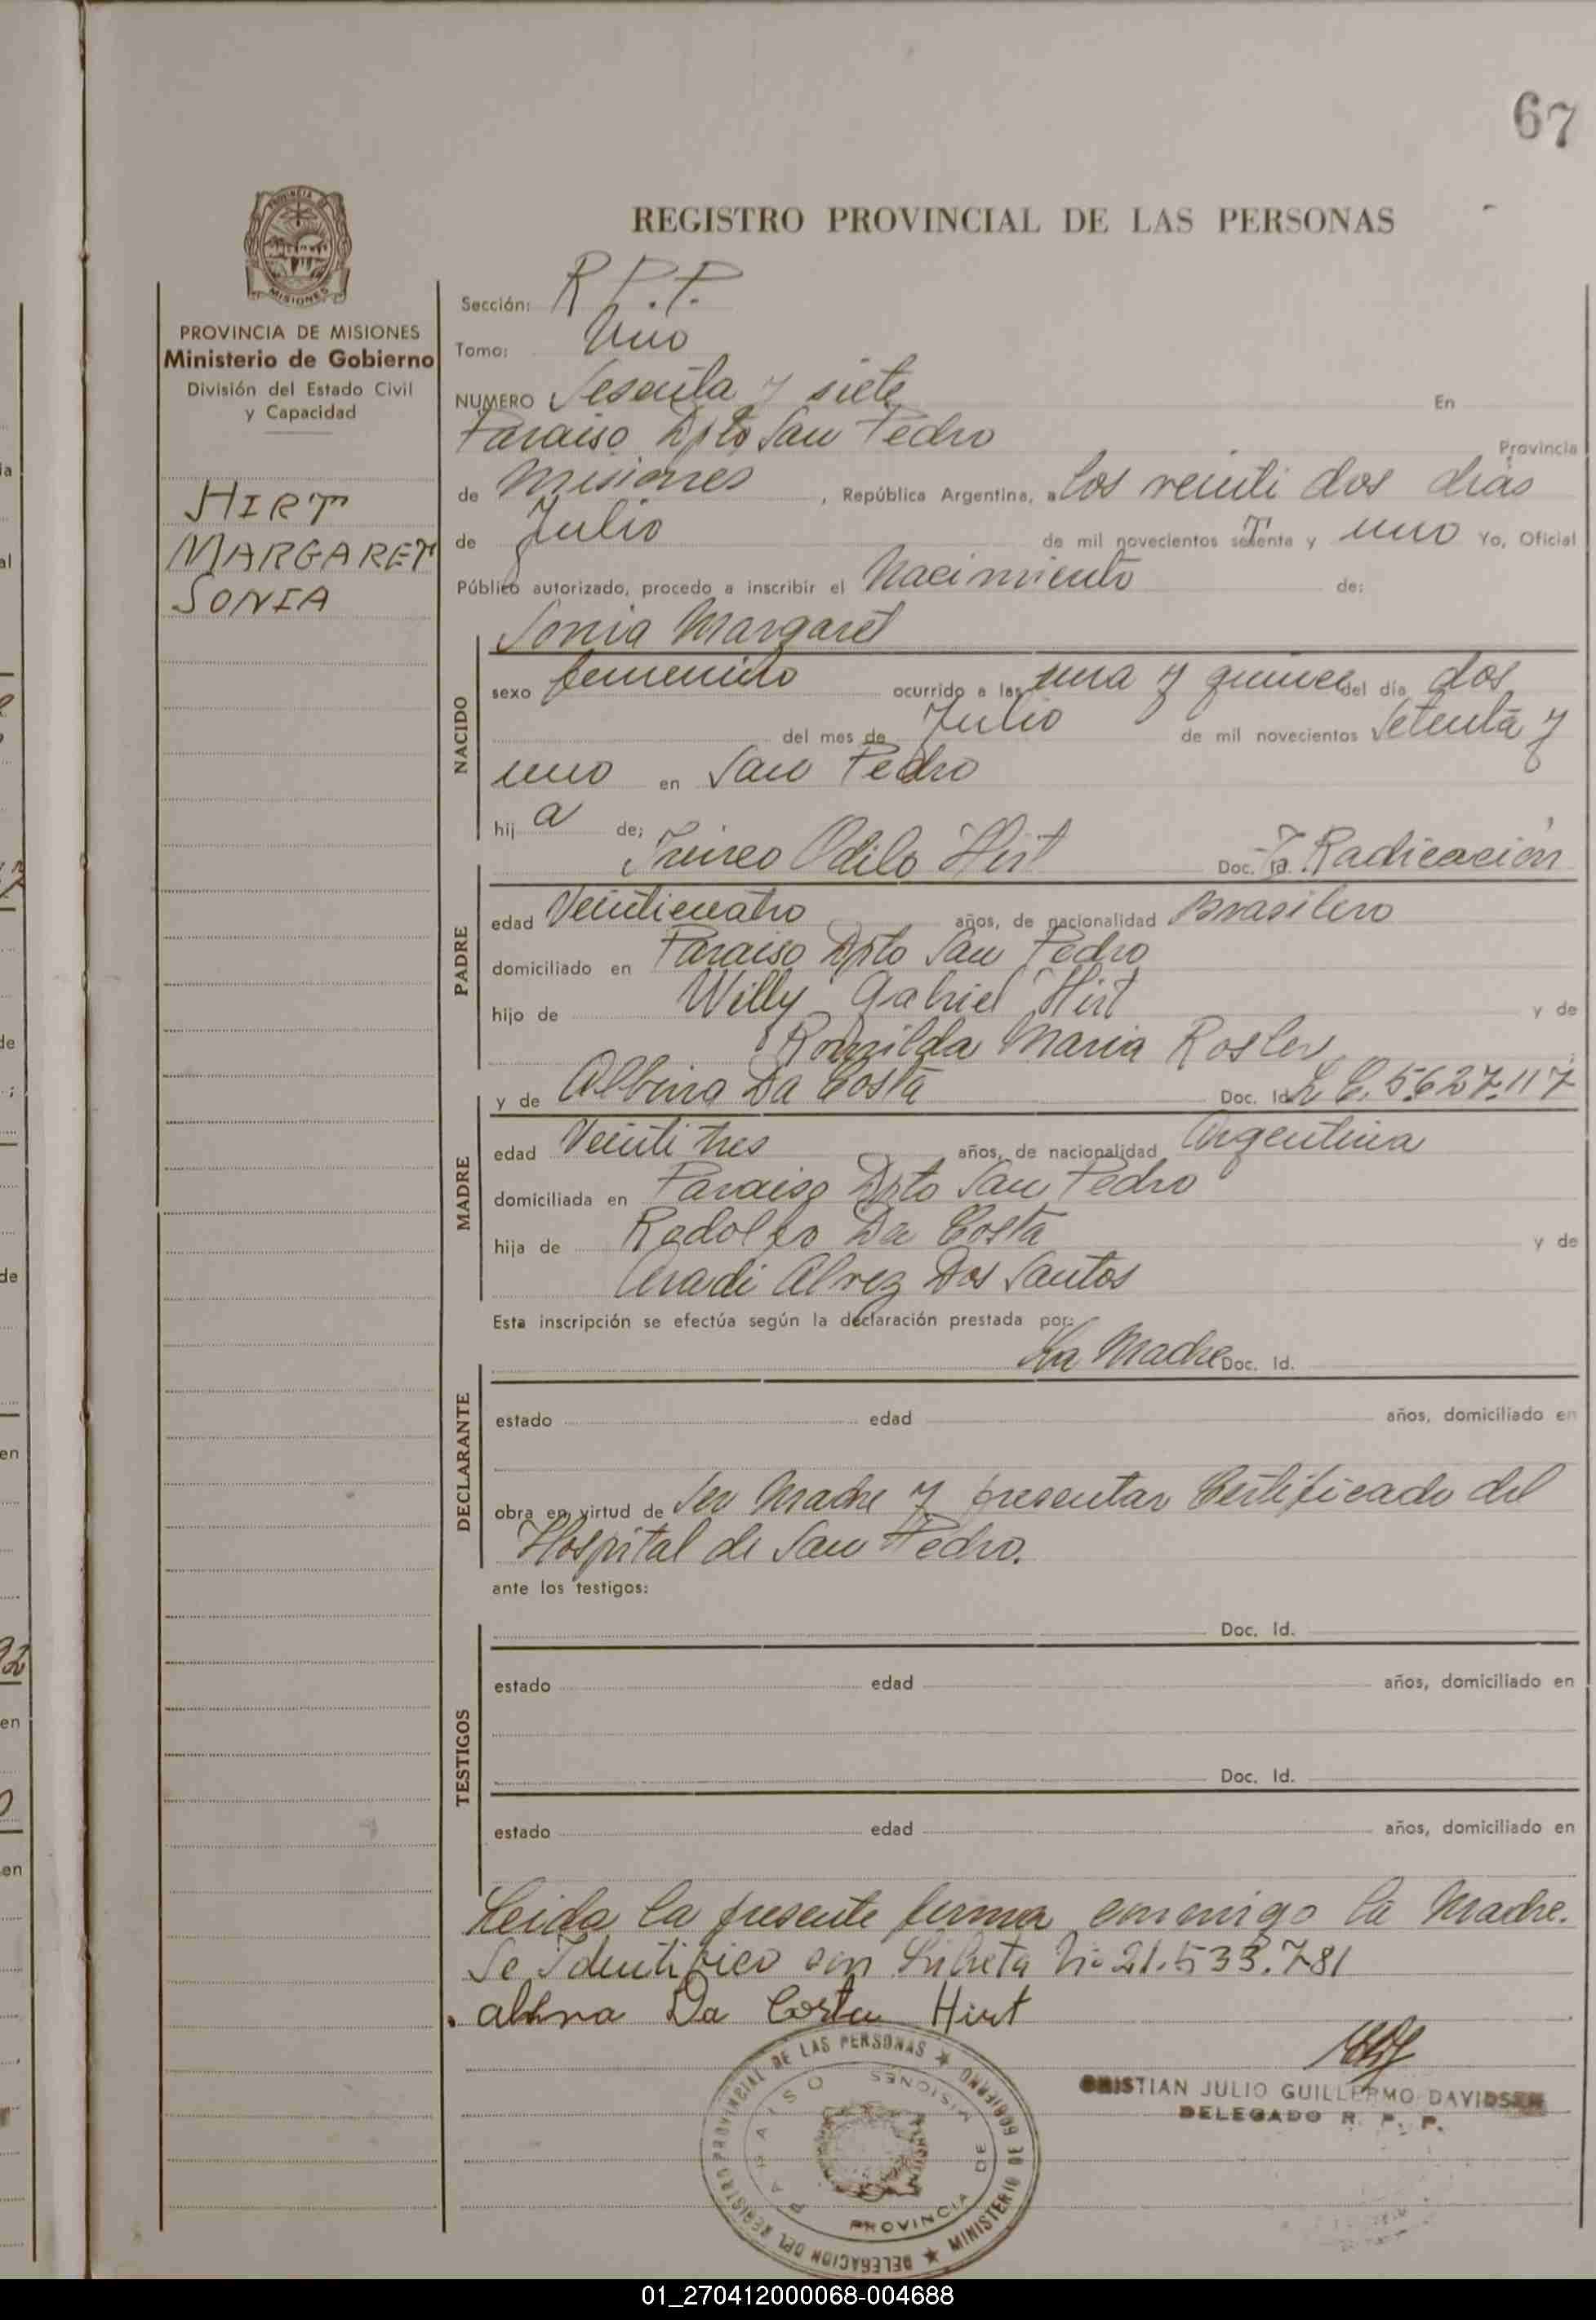 67
REGISTRO PROVINCIAL DE LAS PERSONAS
PROVINCIA DE MISIONES
Ministerio de Gobierno
División del Estado Civil
y Capacidad
HIRT
MARGARET
SONIA
Sección: R P.P.
Tomo: Uno
NUMERO Sesenta y siete En
Paraiso Dpto San Pedro Provincia
de Misiones, República Argentina, a los veinti dos dias
de Julio de mil novecientos setenta y uno Yo, Oficial
Público autorizado, procedo a inscribir el Nacimiento de:
NACIDO
Sonia Margaret
sexo femenino ocurrido a las una y quince del día dos
del mes de Julio de mil novecientos setenta y
uno en San Pedro
hij a de;
PADRE
Irineo Odilo Hirt Doc. Id. T. Radicación
edad Veinticuatro años, de nacionalidad Brasilero
domiciliado en Paraiso Dpto San Pedro
hijo de Willy Gabriel Hirt y de
Romilda Maria Rosler
MADRE
y de Albina Da Costa Doc. Id. L C. 5.627.117
edad Veinti tres años, de nacionalidad Argentina
domiciliada en Paraiso Dpto San Pedro
hija de Rodolfo Da Costa y de
Alvez Dos Santos
Esta inscripción se efectúa según la declaración prestada por:
DECLARANTE
La Madre Doc. Id.
estado edad años, domiciliado en
obra en virtud de ser Madre y presentar Certificado del
Hospital de San Pedro.
ante los testigos:
TESTIGOS
Doc. Id.
estado edad años, domiciliado en
Doc. Id.
estado edad años, domiciliado en
Leida la presente firma conmigo la Madre.
Se Identifico con Libreta No 21.533.781
Albina Da Costa Hirt
CRISTIAN JULIO GUILLERMO DAVIDSEN
DELEGADO R. P. P.
DELEGACION DEL REGISTRO PROVINCIAL DE LAS PERSONAS ★ MINISTERIO DE GOBIERNO ★
PARAISO
PROVINCIA DE MISIONES
01_270412000068-004688